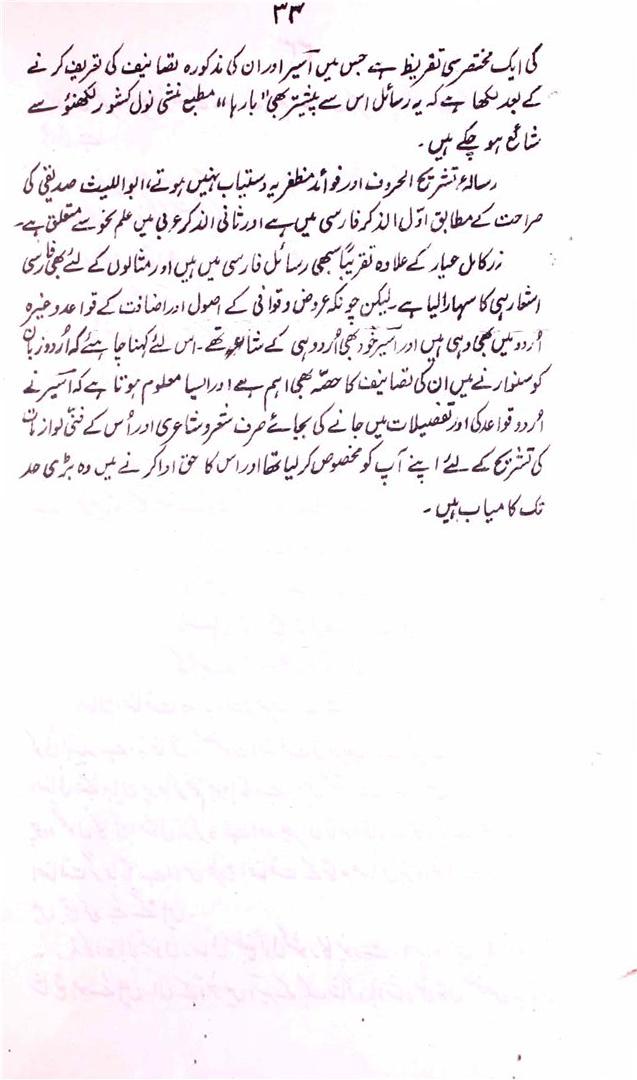 ۳۳
کی ایک مختصر سی تقریظ ہے جس میں اسیر اور ان کی مذکورہ تصانیف کی تعریف کرنے
کے بعد لکھا ہے کہ یہ رسائل اس سے پیشتر بھی "بارہا" مطبع منشی نول کشور لکھنؤ سے
شائع ہو چکے ہیں۔
رسالۂ تشریح الحروف اور فوائد مظفریہ دستیاب نہیں ہوتے، ابو اللیث صدیقی کی
صراحت کے مطابق اوّل الذکر فارسی میں ہے اور ثانی الذکر عربی میں علم نحو سے متعلق ہے۔
زر کامل عیار کے علاوہ تقریباً سبھی رسائل فارسی میں ہیں اور مثالوں کے لئے بھی فارسی
اشعار ہی کا سہارا لیا ہے۔ لیکن چونکہ عروض و قوافی کے اصول اور اضافت کے قواعد وغیرہ
اُردو میں بھی وہی ہیں اور اسیر خود بھی اُردو ہی کے شاعر تھے۔ اس لئے کہنا چاہیئے کہ اُردو زبان
کو سنوارنے میں ان کی تصانیف کا حصّہ بھی اہم ہے اور ایسا معلوم ہوتا ہے کہ اسیر نے
اُردو قواعد کی اور تفصیلات میں جانے کی بجائے صرف شعر و شاعری اور اُس کے فنّی لوازمات
کی تشریح کے لئے اپنے آپ کو مخصوص کر لیا تھا اور اس کا حق ادا کرنے میں وہ بڑی حد
تک کامیاب ہیں۔